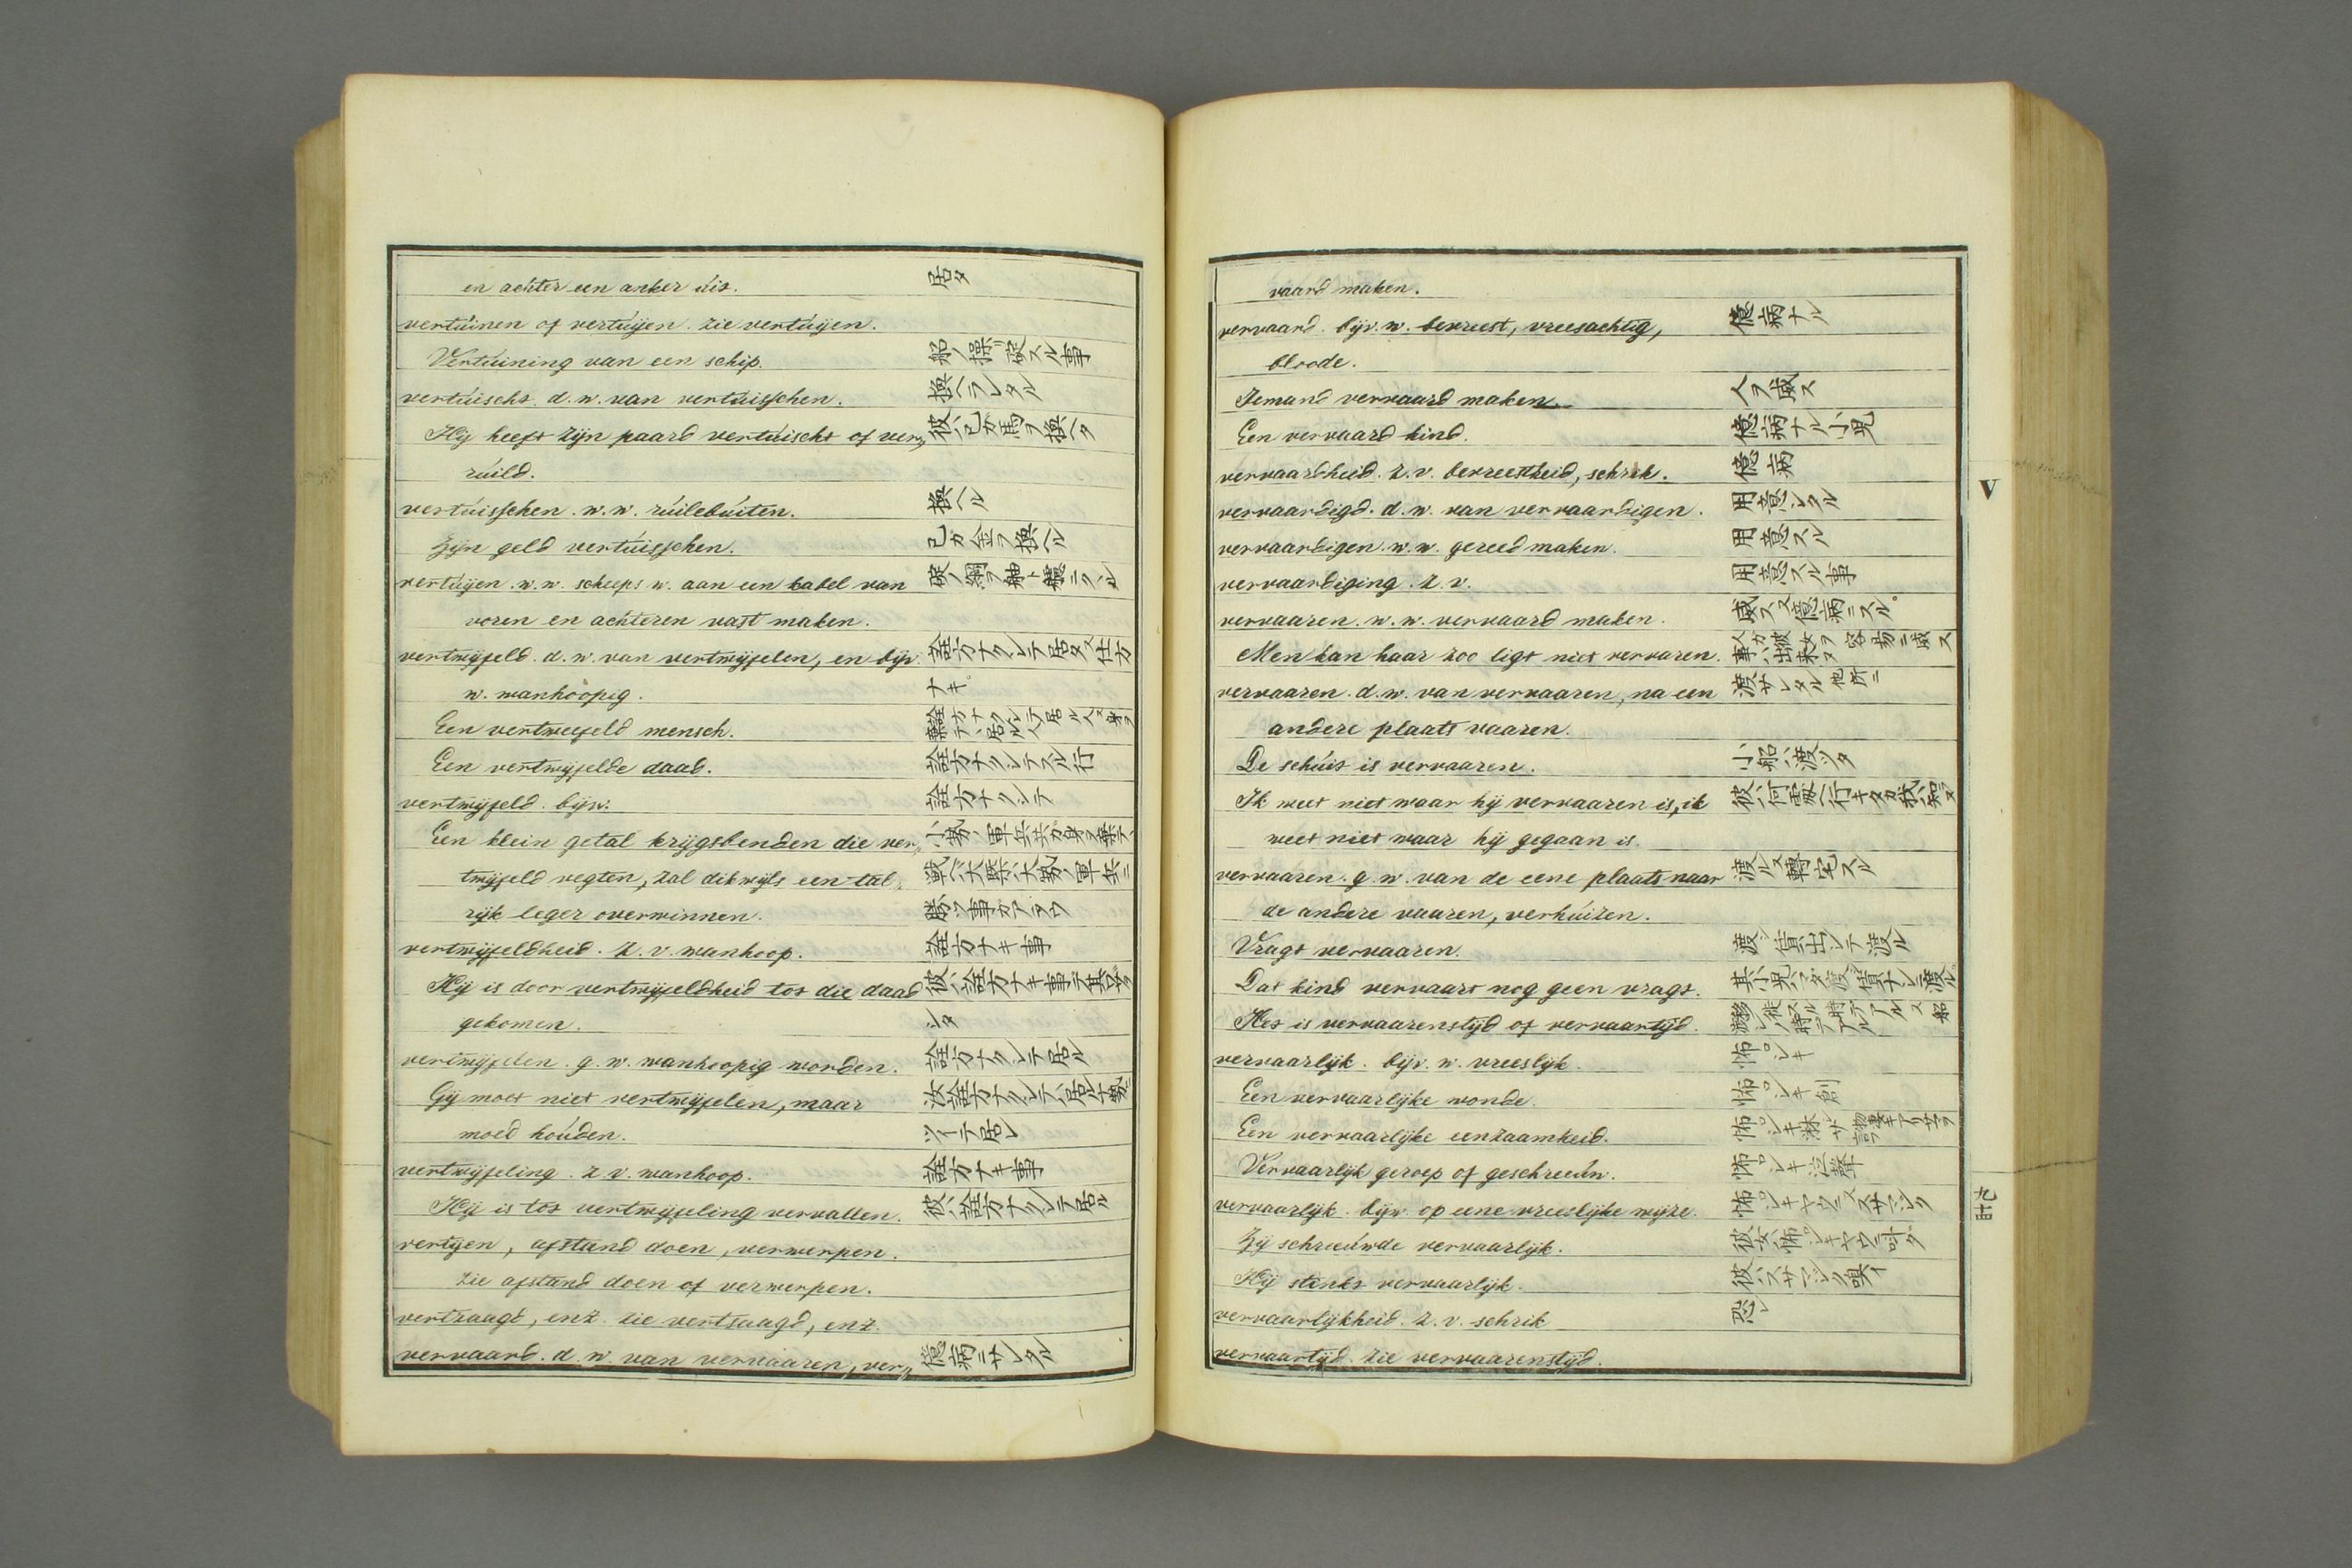 en achter een anker uit. 居タ
vertúinen of vertúijen. zie vertúijen.
Vertúining van een schip. 船ノ碇スル事
vertúischt. d.w. van vertúisschen. 換ヘラレタル
Hij heeft zijn paard vertúischt of ver„ 彼ハ己カ馬ヲ換ヘタ
rúild.
vertúisschen. w.w. rúilebúiten. 換ヘル
Zijn geld vertúisschen. 己カ金ヲ換ヘル
vertúijen. w.w. scheeps w. aan een kabel van
voren en achteren vast maken.
vertwijfeld. d.w. van vertwijfelen, en bijv. 詮方ナクシテ居タ又仕方
w. wanhoopig. ナキ。
Een vertweefeld mensch.
Een vertwijfelde daad. 詮方ナクシテスル行
vertwijfeld. bijw. 詮方ナクシテ
Een klein getal krijgsbenden die ver„ 小勢ノ軍兵共カ身ヲ棄テ
twijfeld vegten, zal dikwijls een tal„
rijk leger overwinnen. 勝ツ事カアラウ
vertwijfeldheid. z.v. wanhoop. 詮方ナキ事
Hij is door vertwijfeldheid tot die daad
gekomen. シタ
vertwijfelen. g.w. wanhoopig worden. 詮方ナクシテ居ル
Gij moet niet vertwijfelen, maar
moed hoúden.
vertwijfeling. z.v. wanhoop. 詮方ナキ事
Hij is tot vertwijfeling vervallen. 彼ハ詮方ナクシテ居ル
vertijen, afstand doen, verwerpen.
zie afstand doen of verwerpen.
vertzaagd, enz. zie vertsaagd, enz.
vervaard. d.w. van vervaaren, ver„ 億病ニサレタル
vaard maken.
vervaard. bijv. w. bevreest, vreesachtig, 億病ナル
bloode.
Iemand vervaard maken. 人ヲ威ス
Een vervaard kind. 億病ナル小児
vervaardheid. z.v. bevreestheid, schrik. 億病
vervaardigd. d.w. van vervaardigen. 用意シタル
vervaardigen. w.w. gereed maken. 用意スル
vervaardiging. z.v. 用意スル事
vervaaren. w.w. vervaard maken. 威ス又億病ニスル。
Men kan haar zoo ligt niet vervaren. 人カ彼女ヲ容易ニ威ス事ハ出来ヌ
vervaaren. d.w. van vervaaren, na een 他所ニ渡サレタル
andere plaats vaaren.
De schúit is vervaaren. 小船ハ渡ツタ
Ik weet niet waar hij vervaaren is, ik 彼ハ何處ヘ行キタカ我ハ知ラヌ
weet niet waar hij gegaan is.
vervaaren. g.w. van de eene plaats naar 渡ル又轉宅スル
de andere vaaren, verhúizen.
Vragt vervaaren. 渡シ賃ヲ出シテ渡ル
Dat kind vervaart nog geen vragt.
Het is vervaarenstijd of vervaartijd.
vervaarlijk. bijv. w. vreeslijk. 怖ロシキ
Een vervaarlijke wonde. 怖ロシキ創
Een vervaarlijke eenzaamheid.
Vervaarlijk geroep of geschreeúw. 怖ロシキ泣聲
vervaarlijk. bijw. op eene vreeslijke wijze.
Zij schreeúwde vervaarlijk.
Hij stinkt vervaarlijk. 彼ハスサマシク臭イ
vervaarlijkheid. z.v. schrik 恐レ
vervaartijd. zie vervaarenstijd.
V